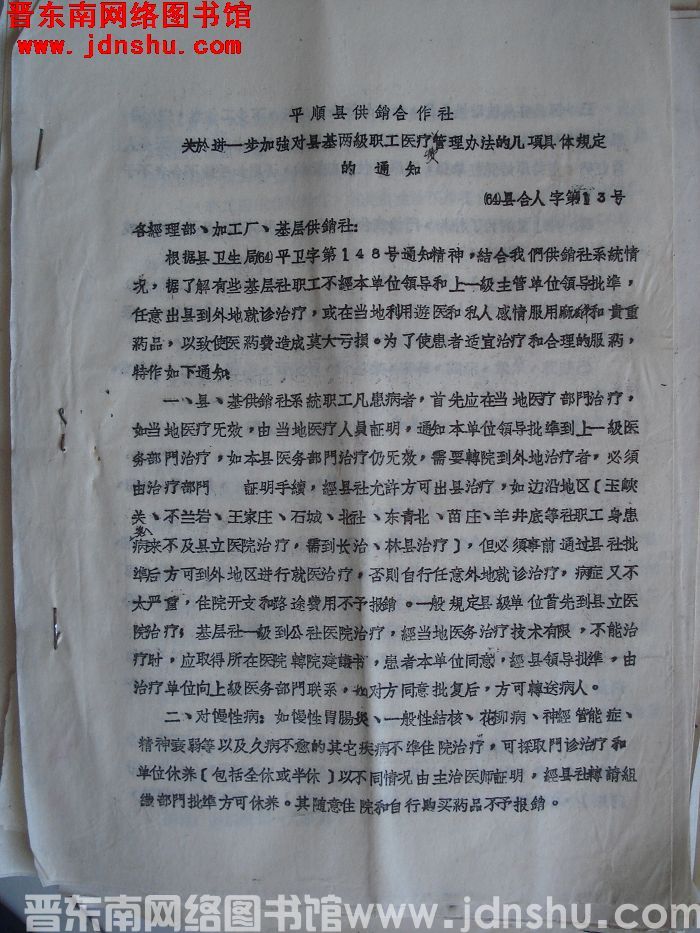 晋东南网络图书馆
www.jdnshu.com
平順县供銷合作社
关於进一步加強对县基两級职工医疗費管理办法的几項具体規定
的通知
(64)县合人字第13号
各經理部、加工厂、基层供銷社:
根据县卫生局(64)平卫字第148号通知精神,結合我們供銷社系統情
况,据了解有些基层社职工不經本单位領导和上一級主管单位領导批準,
任意出县到外地就診治疗,或在当地利用遊医和私人感情服用麻醉和貴重
葯品,以致使医葯費造成莫大亏損。为了使患者适宜治疗和合理的服葯,
特作如下通知:
一、县、基供銷社系統职工凡患病者,首先应在当地医疗部門治疗,
如当地医疗无效,由当地医疗人員証明,通知本单位領导批準到上一級医
务部門治疗,如本县医务部門治疗仍无效,需要轉院到外地治疗者,必須
由治疗部門 証明手續,經县社允許方可出县治疗,如边沿地区〔玉峡
关、不兰岩、王家庄、石城、北社、东青北、苗庄、羊井底等社职工身患
病来不及县立医院治疗,需到长治、林县治疗〕,但必須事前通过县社批
準后方可到外地区进行就医治疗,否則自行任意外地就診治疗,病症又不
太严重,住院开支和路途費用不予报銷。一般規定县級单位首先到县立医
院治疗;基层社一級到公社医院治疗,經当地医务治疗技术有限,不能治
疗时,应取得所在医院轉院建議书,患者本单位同意,經县領导批準,由
治疗单位向上級医务部門联系,如对方同意批复后,方可轉送病人。
二、对慢性病:如慢性胃腸炎、一般性結核、花柳病、神經管能症、
精神衰弱等以及久病不愈的其它疾病不準住院治疗,可採取門診治疗和
单位休养〔包括全休或半休〕以不同情况由主治医师証明,經县社轉請組
織部門批準方可休养。其随意住院和自行购买葯品不予报銷。
晋东南网络图书馆www.jdnshu.com